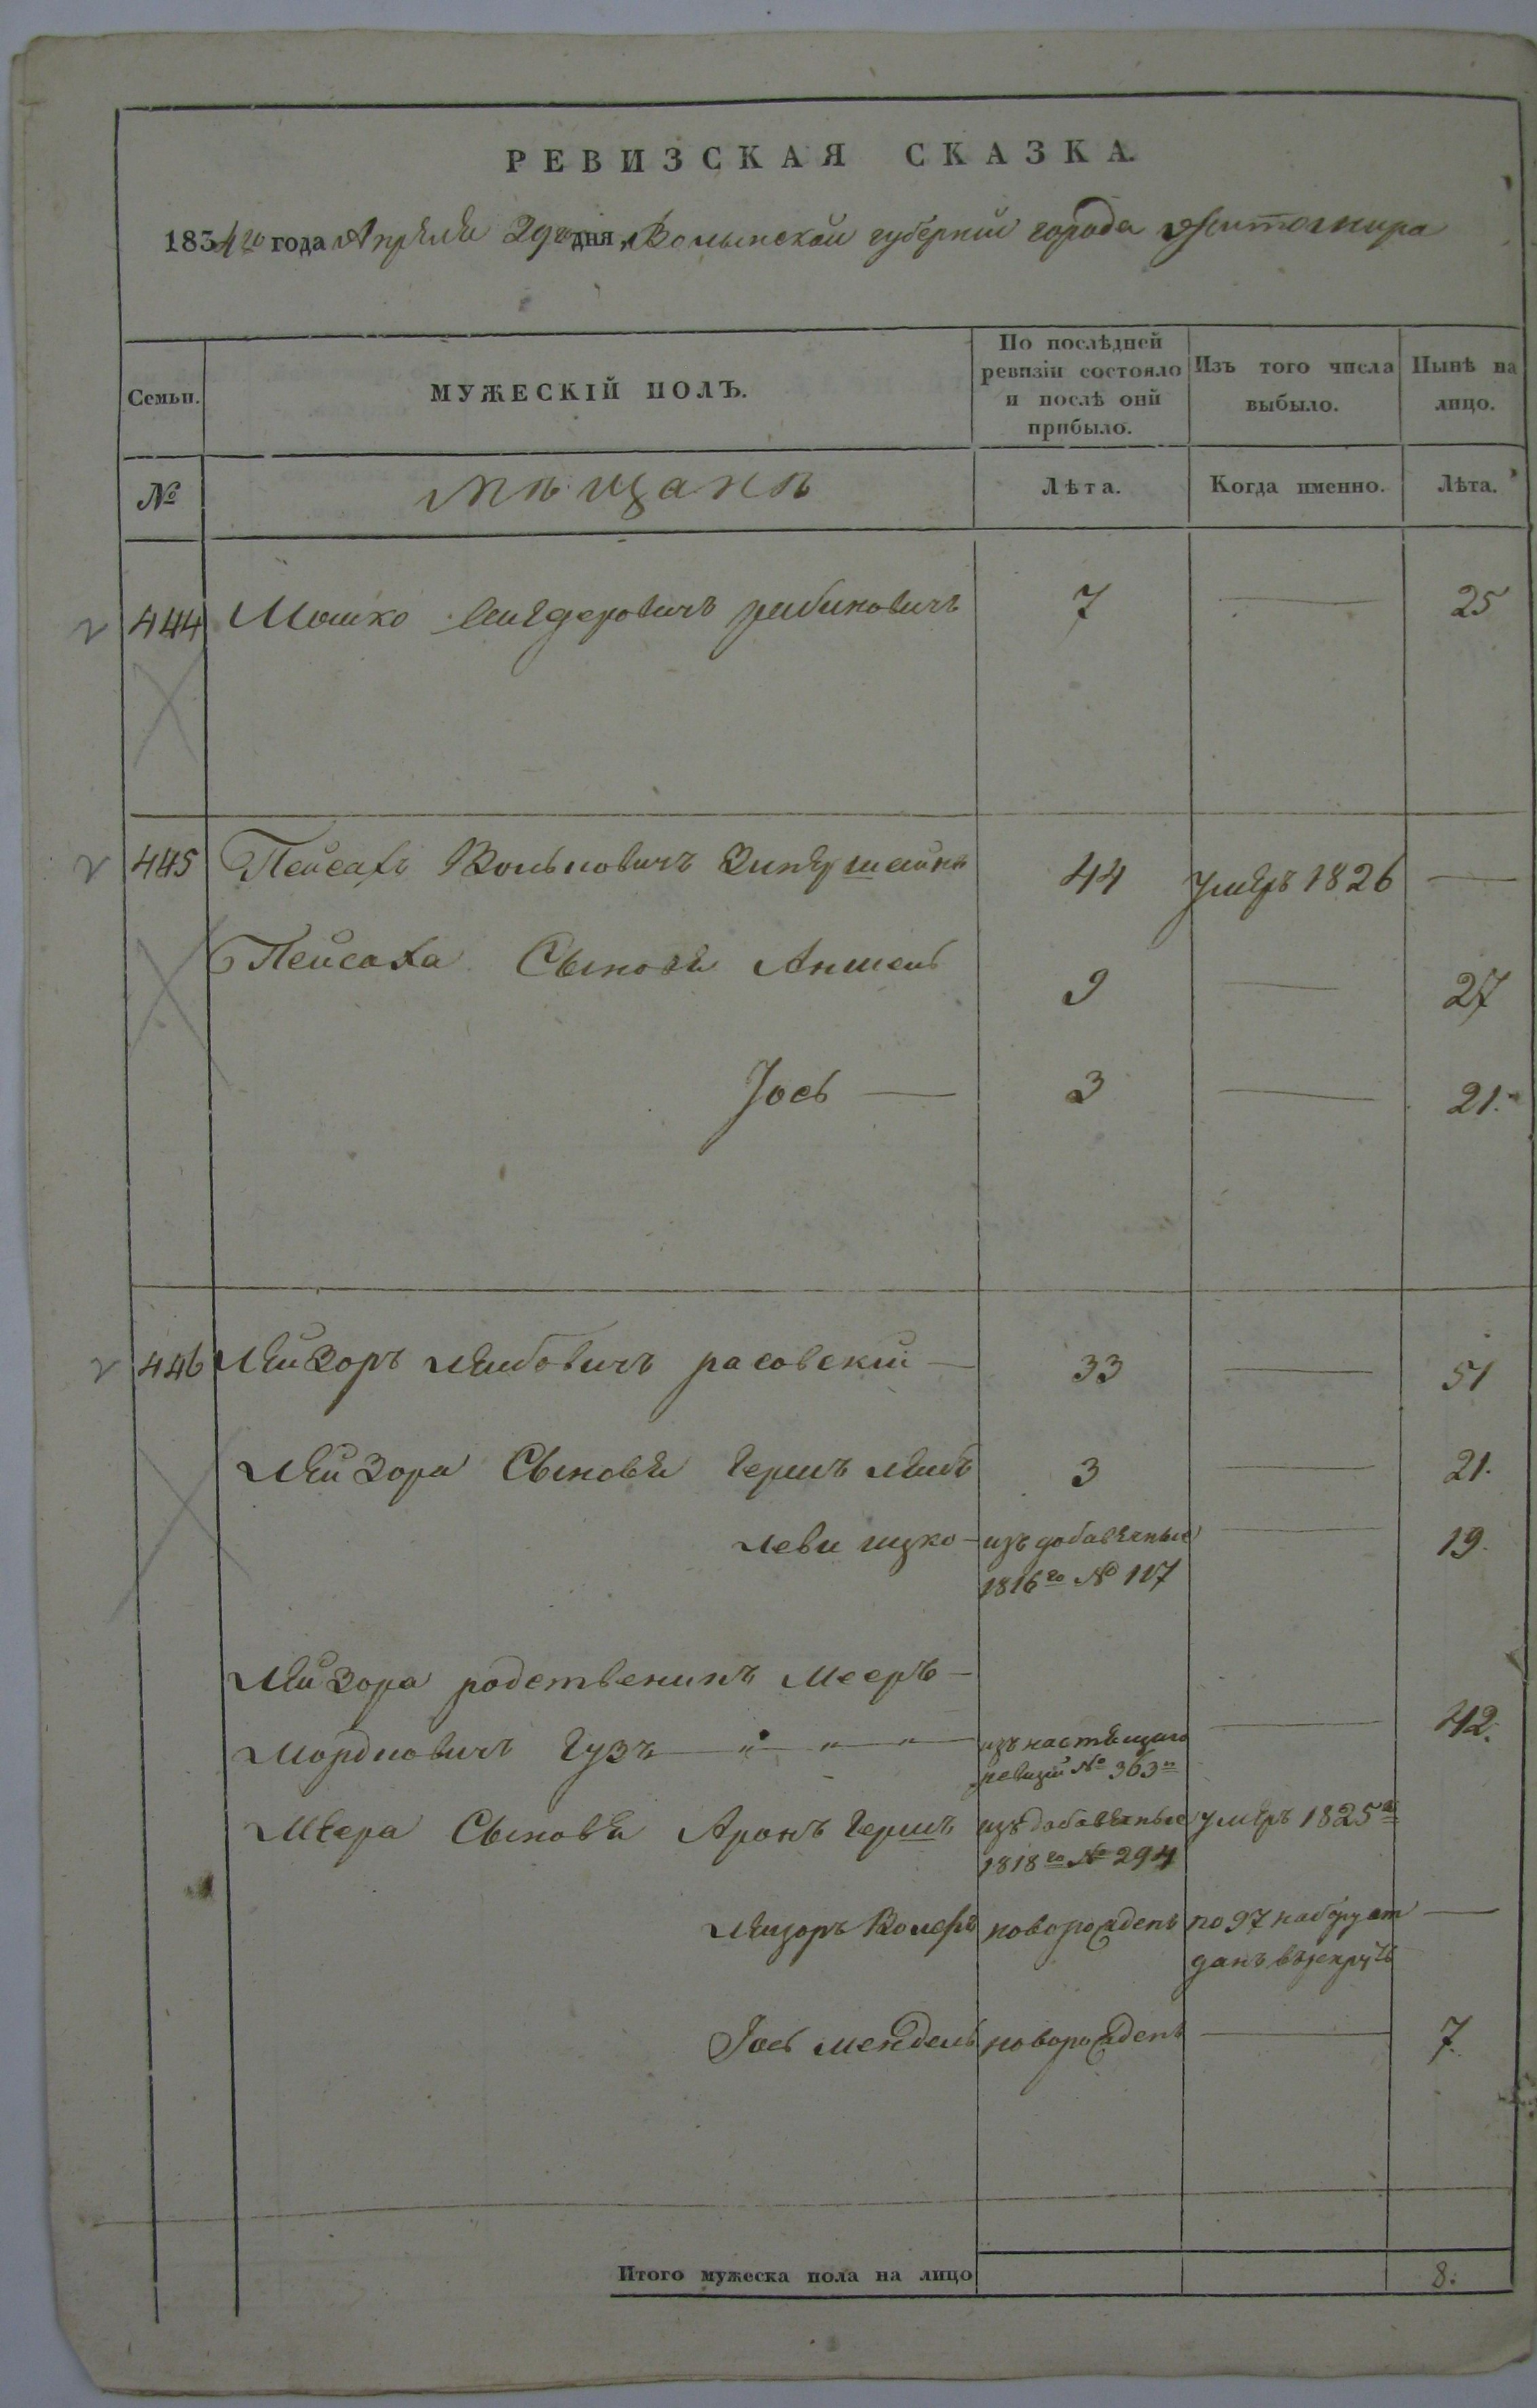 РЕВИЗСКАЯ СКАЗКА.
1834го года Апреля 29го дня, Волынской губернии города Житомира
Семьи.
МУЖЕСКІЙ ПОЛЪ.
По послѣдней ревизіи состояло и послѣ оній прибыло.
Изъ того числа выбыло.
Нынѣ на лицо.
№
мѣщанѣ
Лѣта.
Когда именно.
Лѣта.
444 Мошко рабиновичъ 7 — 25
445 Пейсахъ Вольковичъ 44 умеръ 1826 —
Пейсаха Сыновя Аншель 9 — 27
Іось — 3 — 21.
446 Лейзоръ Лейбовичъ расовский — 33 — 51
Лейзора Сыновя Гершъ Лейбъ 3 — 21.
Леви ицко — изъ добавечные — 19.
1816го № 117
Лейзора родственикъ Мееръ —
Мордковичъ Гузъ — " — " — " — изъ настоящаго — 42.
ревизии № 363
Меера Сыновя Аронъ Гершъ изъ добавечные умеръ 1825
1818го № 294
Лейзоръ Волфъ новорожденъ по 97 набору от —
данъ в рекруты
Іось Мендель новорожденъ — 7.
Итого мужеска пола на лицо 8.